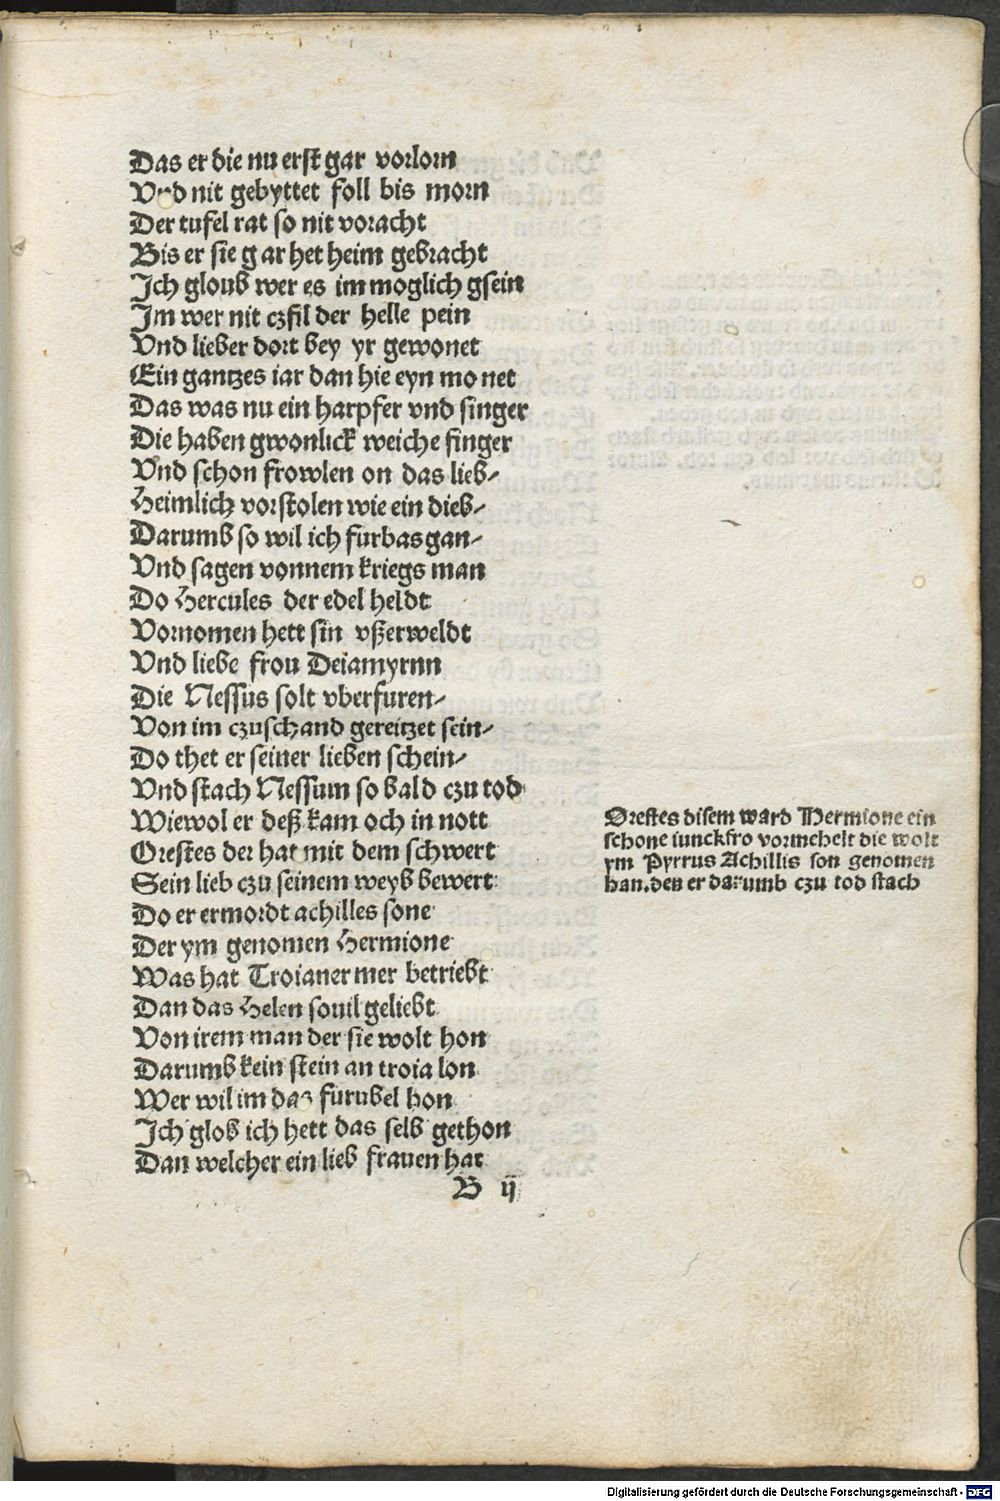 Das er die nu erst gar vorlorn
Vnd nit gebyttet foll bis morn
Der tufel rat so nit voracht
Bis er sie gar het heim gebracht
Ich gloub wer es im moglich gsein
Im wer nit czfil der helle pein
Vnd lieber dort bey yr gewonet
Ein gantzes iar dan hie eyn monet
Das was nu ein harpfer vnd singer
Die haben gwonlick weiche finger
Vnd schon frowlen on das lieb/
Heimlich vorstolen wie ein dieb/
Darumb so wil ich furbas gan/
Vnd sagen vonnem kriegs man
Do Hercules der edel heldt
Vornomen hett sin vßerweldt
Vnd liebe frou Deiamyrnn
Die Nessus solt vberfuren/
Von im czuschand gereitzet sein/
Do thet er seiner lieben schein/
Vnd stach Nessum so bald czu tod
Wiewol er deß kam och in nott
Orestes der hat mit dem schwert
Sein lieb czu seinem weyb bewert
Do er ermordt achilles sone
Der ym genomen Hermione
Was hat Troianer mer betriebt
Dan das Helen souil geliebt
Von irem man der sie wolt hon
Darumb kein stein an troia lon
Wer wil im das furubel hon
Ich glob ich hett das selb gethon
Dan welcher ein lieb frauen hat
B ij
Orestes disem ward Thermione ein
schone iunckfro vormehelt die wolt
ym Pyrrus Achillis son genomen
han. den er darumb czu tod stach
Digitalisierung gefördert durch die Deutsche Forschungsgemeinschaft - DFG